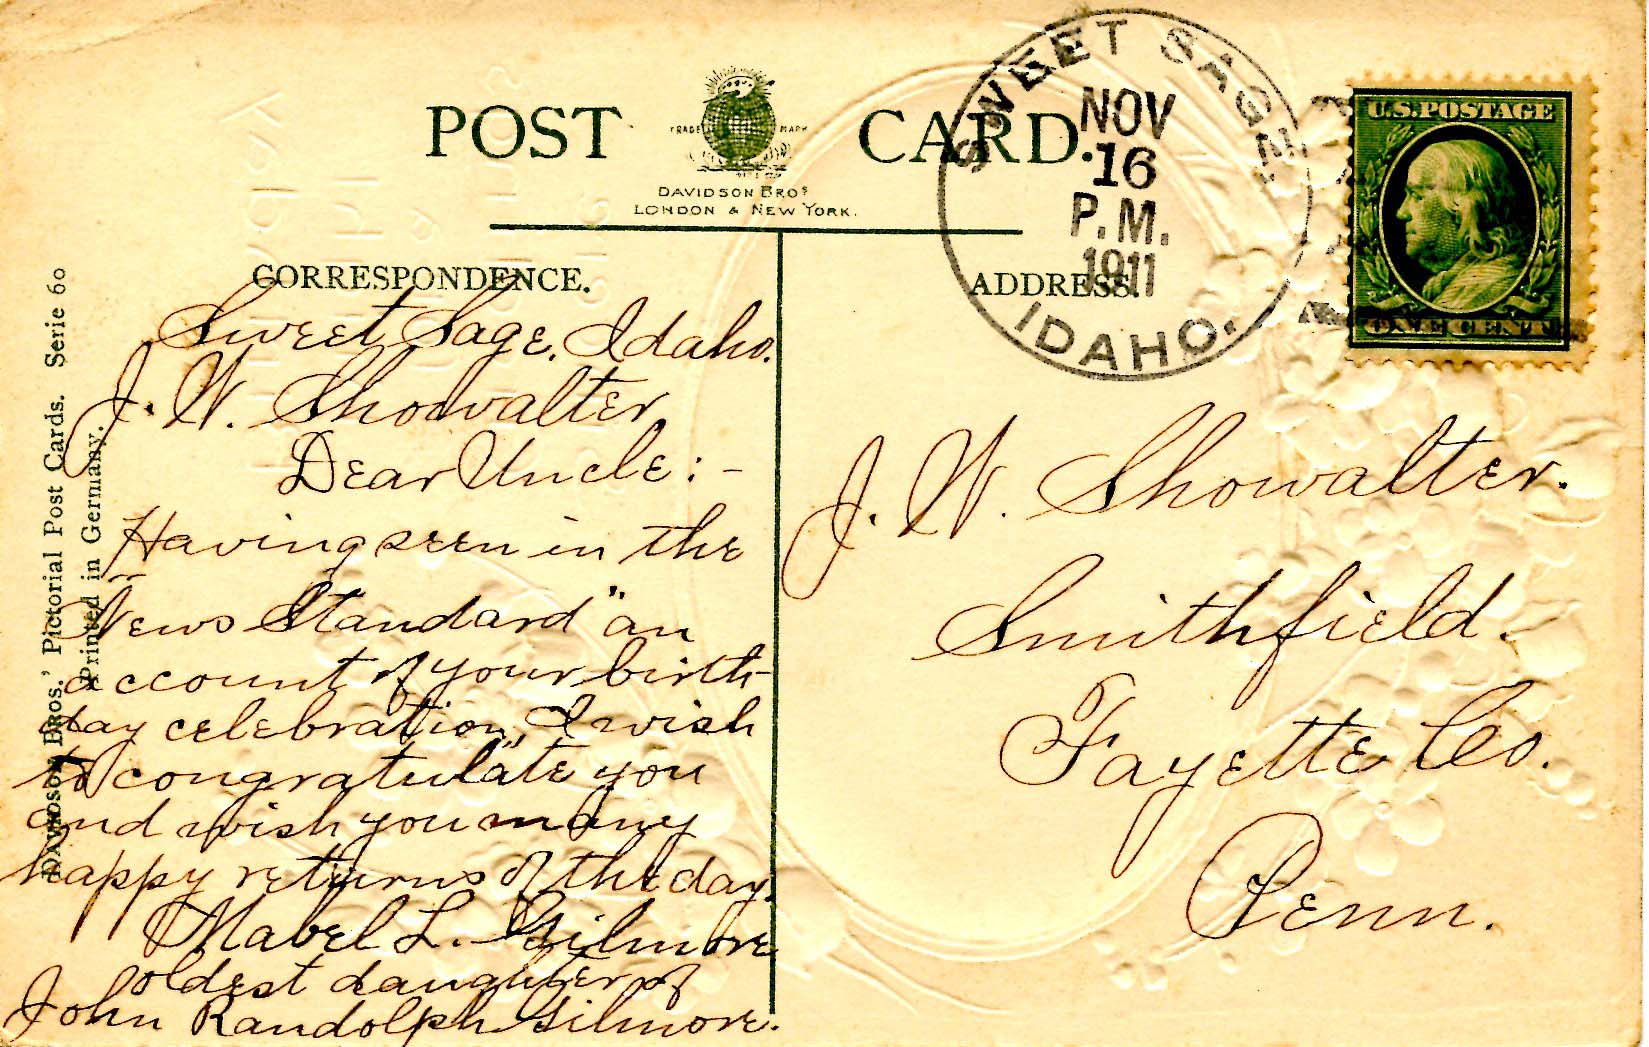 POST CARD.
TRADE MARK
DAVIDSON BROS
LONDON & NEW YORK.
SWEET SAGE,
NOV
16
P.M.
1911
IDAHO.
U.S. POSTAGE
ONE CENT
CORRESPONDENCE.
Sweet Sage, Idaho.
J. W. Showalter,
Dear Uncle:-
Having seen in the
"News Standard" an
account of your birth-
day celebration, I wish
to congratulate you
and wish you many
happy returns of the day.
Mabel L. Gilmore
oldest daughter of
John Randolph Gilmore.
ADDRESS.
J. W. Showalter.
Smithfield.
Fayette Co.
Penn.
DAVIDSON BROS.' Pictorial Post Cards. Serie 60
Printed in Germany.